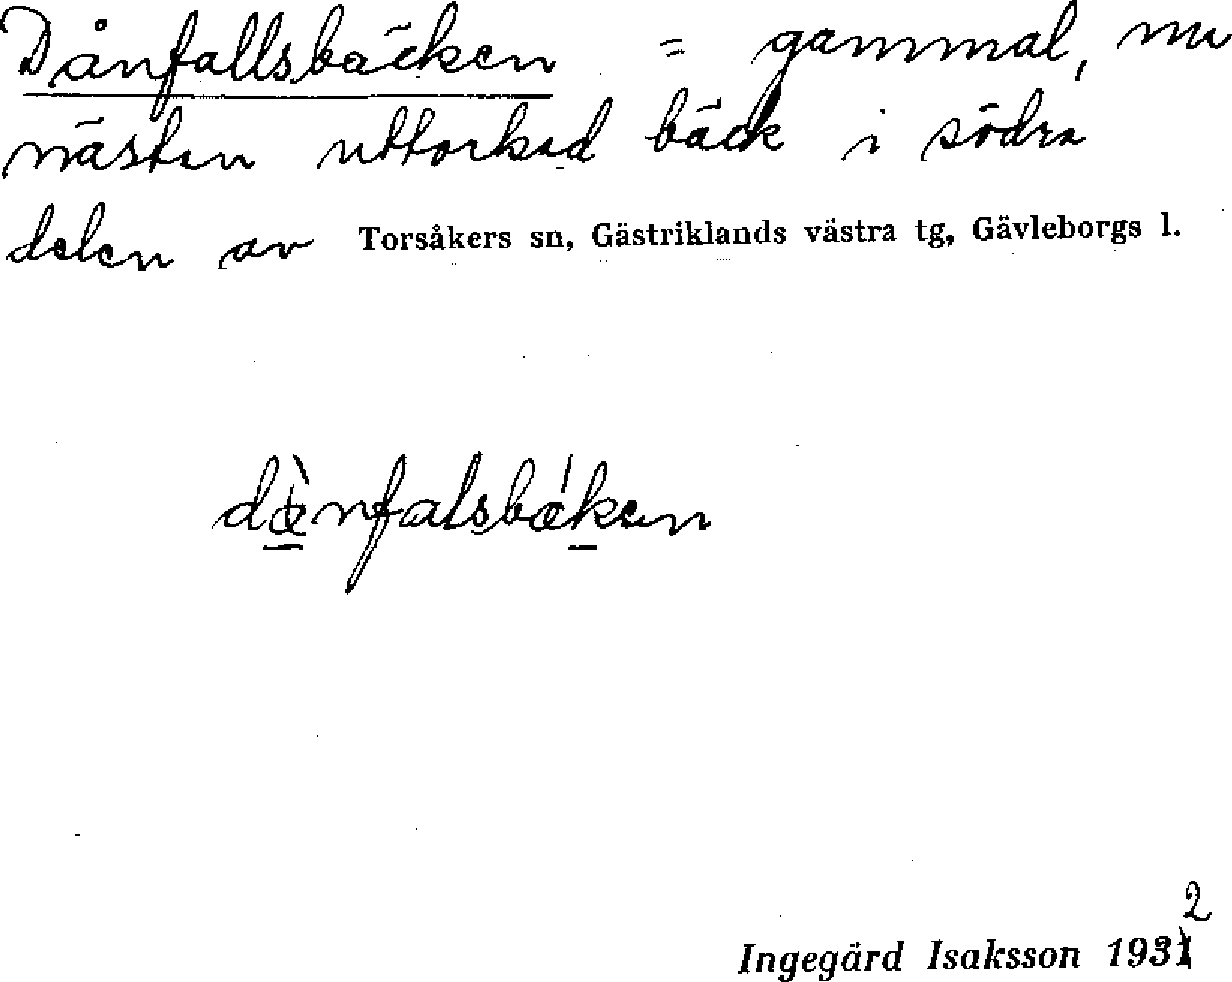 Dånfallsbäcken = gammal, nu
nästan uttorkad bäck i södra
delen av Torsåkers sn, Gästriklands västra tg, Gävleborgs l.
dæ̀nfalsbǽken
Ingegärd Isaksson 1932